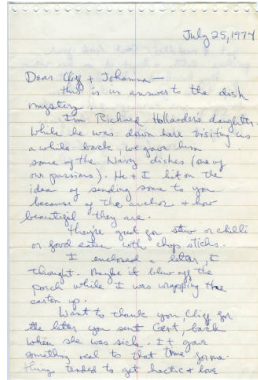 July 25, 1974
Dear Cliff + Johanna—
this is in answer to the dish
mystery.
I'm Richard Hollander's daughter.
While he was down here visiting us
a while back, we gave him
some of the Navy dishes (one of
our passions). He + I hit on the
idea of sending some to you
because of the anchor + how
beautiful they are.
They're just good for stew or chili
or good eaten with chop sticks.
I enclosed a letter, I
thought. Maybe it blew off the
porch while I was wrapping the
carton up.
Want to thank you, Cliff, for
the letter you sent Gert, back
when she was sick. It gave
something real to that time for me.
Things tended to get hectic + love